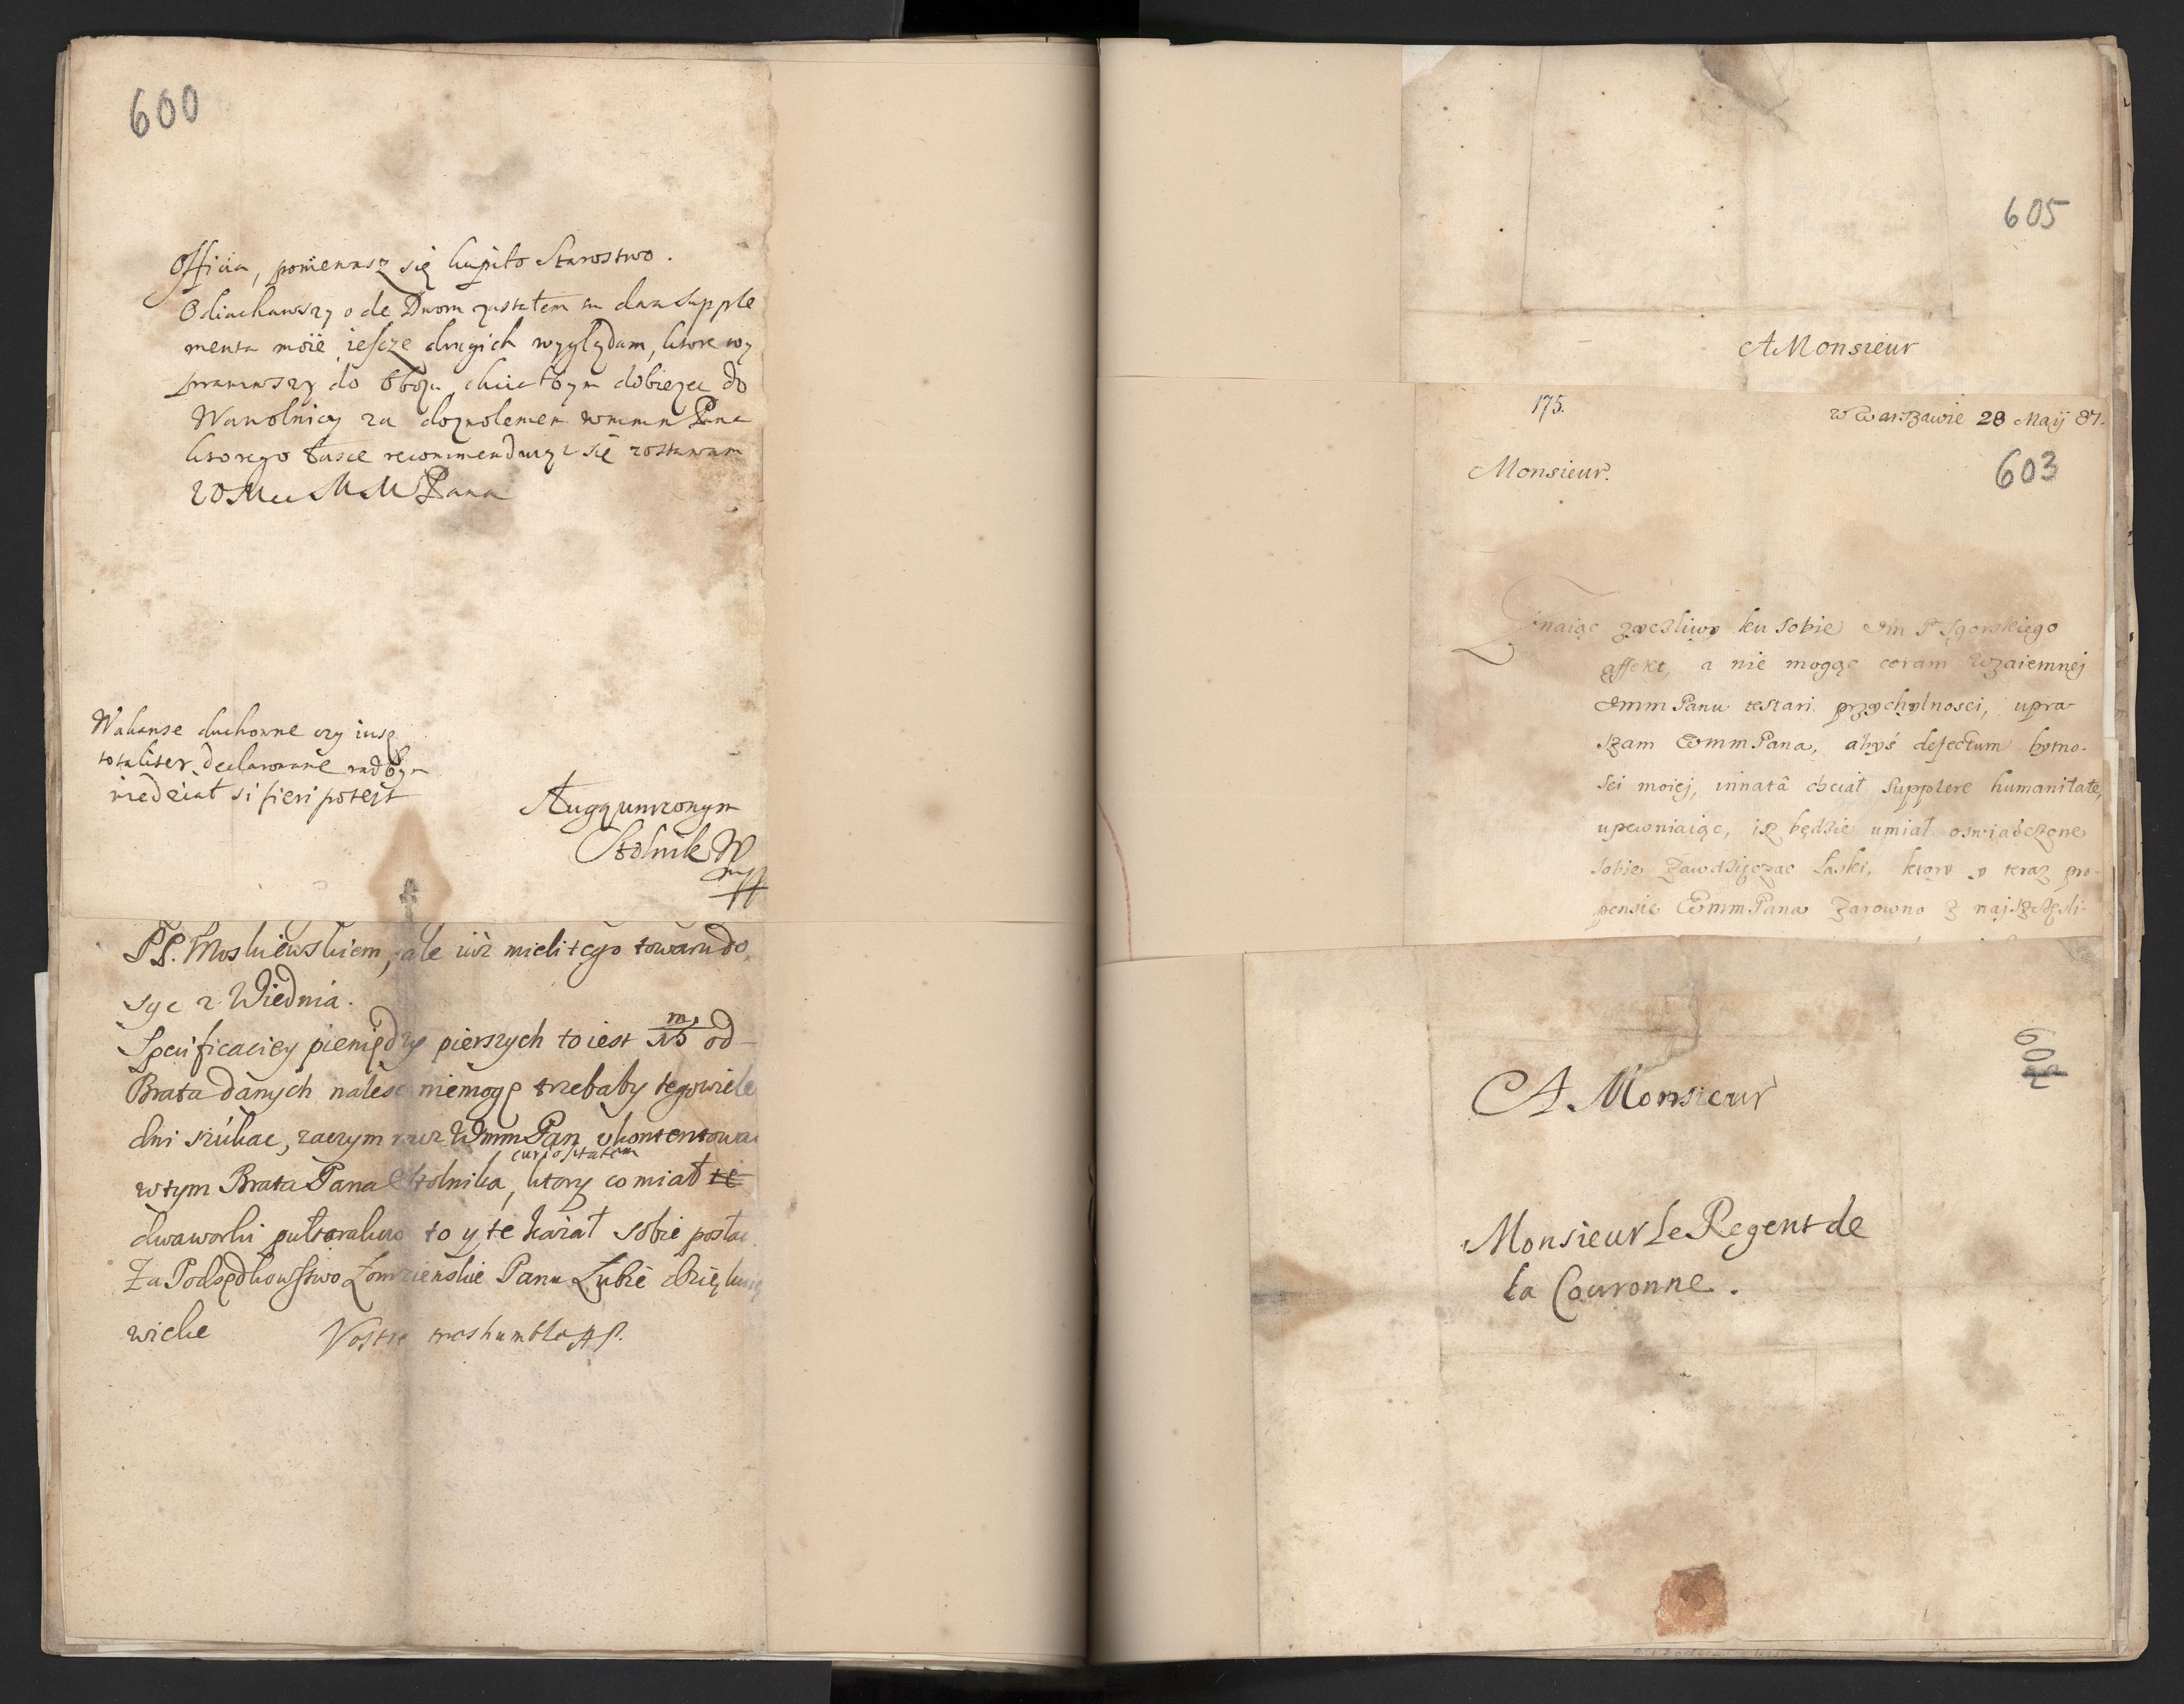 600
Officia, poniewasz się kupiło Starostwo.
Odiachawszy ode Dwom zustałem in dwa supple
menta moie ieszcze drugich wyglądam, ktore wy
prawiwszy do Obozu chciałbym dobiezec do
Wawolnicy za dozwoleniem wmmm Pana
ktorego łasce recommenduiąc się zostawam
WMM M M Pana
Wakanse duchowne czy iusz
totaliter declarowane radbym
wiedział si fieri potest
Sługą uniżonym
Stolnik W
mpp
PP. Moskiewskiem, ale iuż mieli tego towaru do
syc z Wiednia.
Specificaciey pieniędzy pierszych to iest m/15 od
Brata danych nalesc niemogę trzebaby tego wiele
dni szukac, zaczym racz Wmm Pan ukontentowac
curiositatem
w tym Brata Pana Stolnika, ktory co miał te
dwa worki pułtorakuw to y te kazał sobie posłac
Za Podsędkowstwo Łomzienskie Panu Lubie dziękuię
wielce Vostre tres humble
605
A Monsieur
175.
w Warszawie 28 Maij 87.
603
Monsieur.
Znaiąc zyczliwy ku sobie Im P Sgorskiego
affekt, a nie mogąc coram wzaiemnej
Wmm Panu testari przychylnosci, upra-
szam Wmm Pana, abyś defectum bytno-
sci moiej, innatâ chciał supplere humanitate,
upewniaiąc, iż będzie umiał oswiadczone
sobie zawdzięczac łaski, ktory y teraz pro-
pensie Wmm Pana zarowno z najszczęśli-
602
A Monsieur
Monsieur Le Regent de
la Couronne.